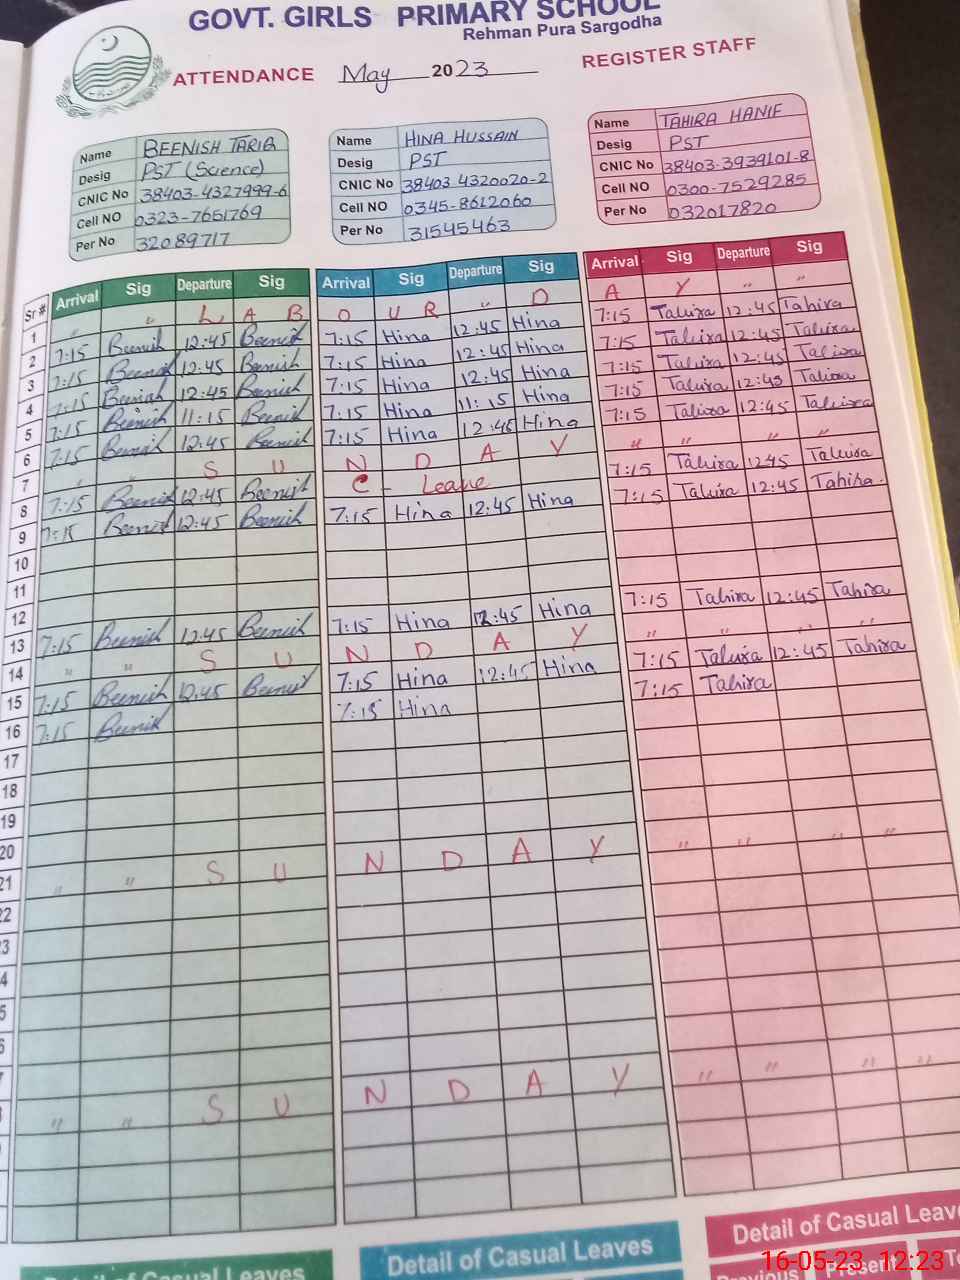 GOVT. GIRLS PRIMARY SCHOOL
Rehman Pura Sargodha
ATTENDANCE May 2023 REGISTER STAFF
Name BEENISH TARIQ
Desig PST (Science)
CNIC No 38403-4327999-6
Cell NO 0323-7651769
Per No 32089717
Name HINA HUSSAIN
Desig PST
CNIC No 38403-4320020-2
Cell NO 0345-8612060
Per No 31545463
Name TAHIRA HANIF
Desig PST
CNIC No 38403-3939101-8
Cell NO 0300-7529285
Per No 032017820
Sr # Arrival Sig Departure Sig Arrival Sig Departure Sig Arrival Sig Departure Sig
1 " " L A B O U R " D A Y " "
2 7:15 Beenish 12:45 Beenish 7:15 Hina 12:45 Hina 7:15 Tahira 12:45 Tahira
3 7:15 Beenish 12:45 Beenish 7:15 Hina 12:45 Hina 7:15 Tahira 12:45 Tahira
4 7:15 Beenish 12:45 Beenish 7:15 Hina 12:45 Hina 7:15 Tahira 12:45 Tahira
5 7:15 Beenish 11:15 Beenish 7:15 Hina 11:15 Hina 7:15 Tahira 12:45 Tahira
6 7:15 Beenish 12:45 Beenish 7:15 Hina 12:45 Hina 7:15 Tahira 12:45 Tahira
7 " " S U N D A Y " " " "
8 7:15 Beenish 12:45 Beenish C - Leave 7:15 Tahira 12:45 Tahira
9 7:15 Beenish 12:45 Beenish 7:15 Hina 12:45 Hina 7:15 Tahira 12:45 Tahira
10
11
12
13 7:15 Beenish 12:45 Beenish 7:15 Hina 12:45 Hina 7:15 Tahira 12:45 Tahira
14 " " S U N D A Y " " " "
15 7:15 Beenish 12:45 Beenish 7:15 Hina 12:45 Hina 7:15 Tahira 12:45 Tahira
16 7:15 Beenish 7:15 Hina 7:15 Tahira
17
18
19
20
21 " " S U N D A Y " " " "
22
3
4
5
6
7
" " S U N D A Y " " " "
Detail of Casual Leaves
Detail of Casual Leaves
Previous Present
16-05-23 12:23